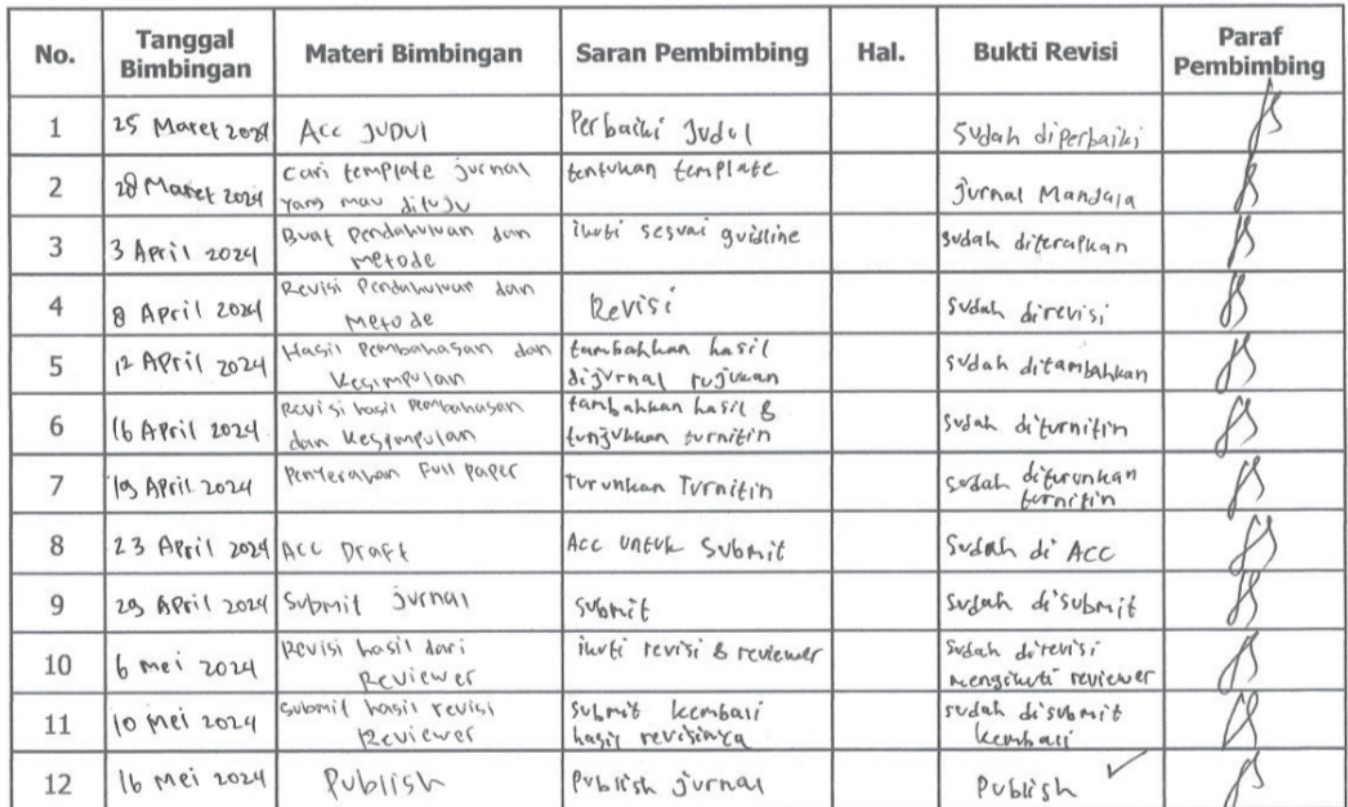 No.
Tanggal
Bimbingan
Materi Bimbingan
Saran Pembimbing
Hal.
Bukti Revisi
Paraf
Pembimbing
1
25 Maret 2024
Acc JUDUl
Perbaiki Judul
Sudah diperbaiki
2
28 Maret 2024
Cari template jurnal
yang mau dituju
tentukan template
Jurnal Mandala
3
3 April 2024
Buat Pendahuluan dan
Metode
ikuti sesuai guidline
sudah diterapkan
4
8 April 2024
Revisi Pendahuluan dan
Metode
Revisi
Sudah direvisi
5
12 April 2024
Hasil Pembahasan dan
Kesimpulan
tambahkan hasil
dijurnal rujukan
sudah ditambahkan
6
16 April 2024
Revisi hasil Pembahasan
dan Kesimpulan
tambahkan hasil &
tunjukkan turnitin
sudah diturnitin
7
19 April 2024
Penyerahan Full paper
turunkan Turnitin
sudah diturunkan
turnitin
8
23 April 2024
Acc Draft
Acc untuk Submit
Sudah di Acc
9
29 April 2024
Submit jurnal
Submit
Sudah disubmit
10
6 Mei 2024
Revisi hasil dari
Reviewer
ikuti revisi & reviewer
Sudah direvisi
mengikuti reviewer
11
10 Mei 2024
Submit hasil revisi
Reviewer
Submit kembali
hasil revisinya
sudah disubmit
kembali
12
16 Mei 2024
Publish
Publish jurnal
Publish